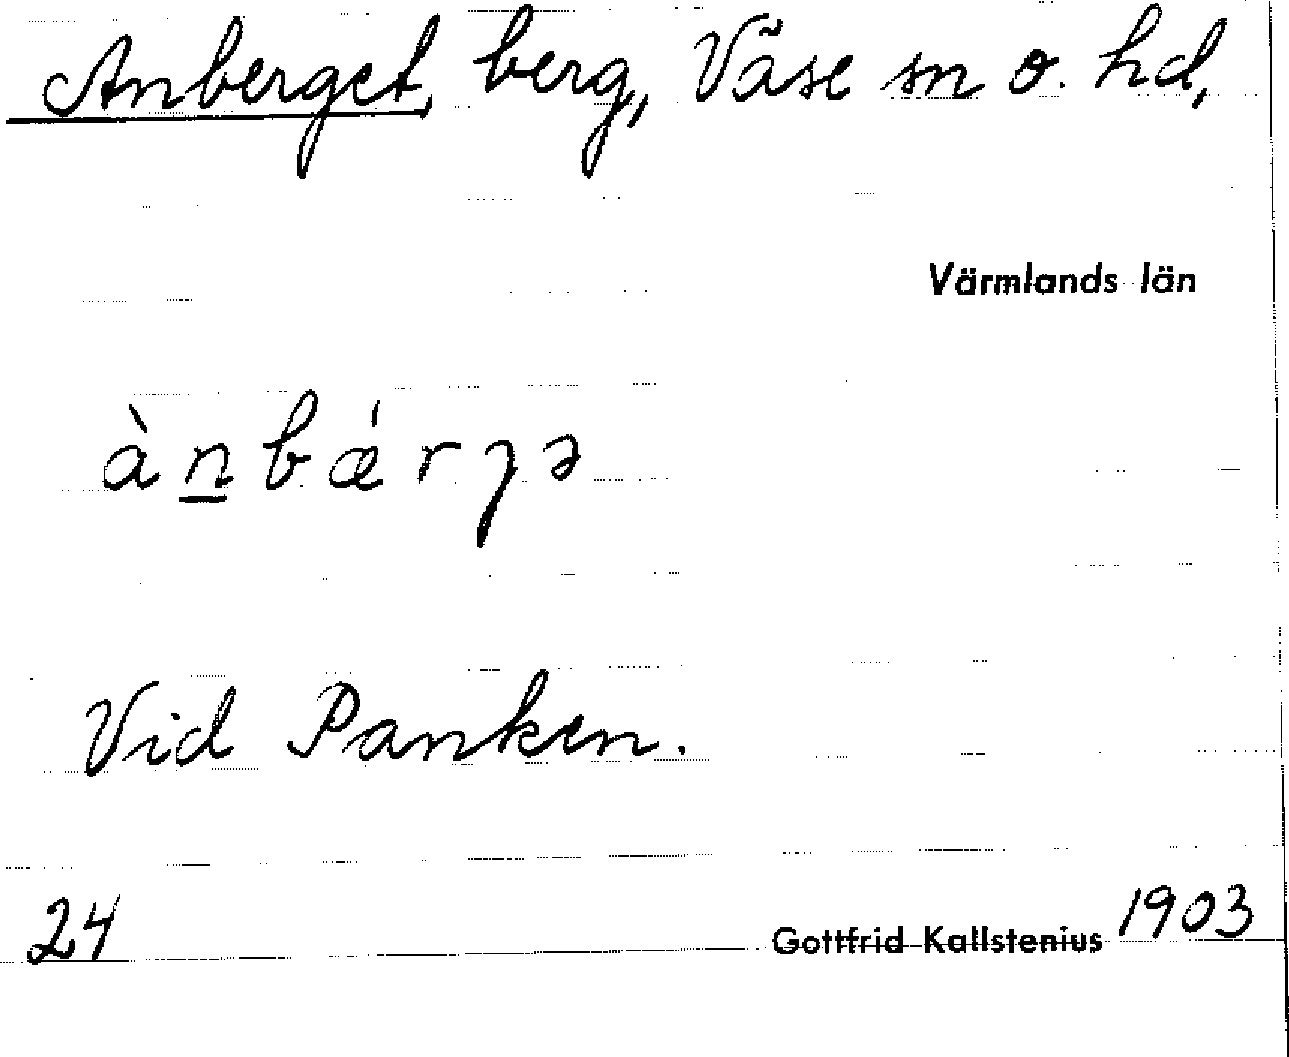 Anberget, berg, Väse sn o. hd,
Värmlands län
ànbǽrȷə
Vid Panken.
24
Gottfrid Kallstenius 1903